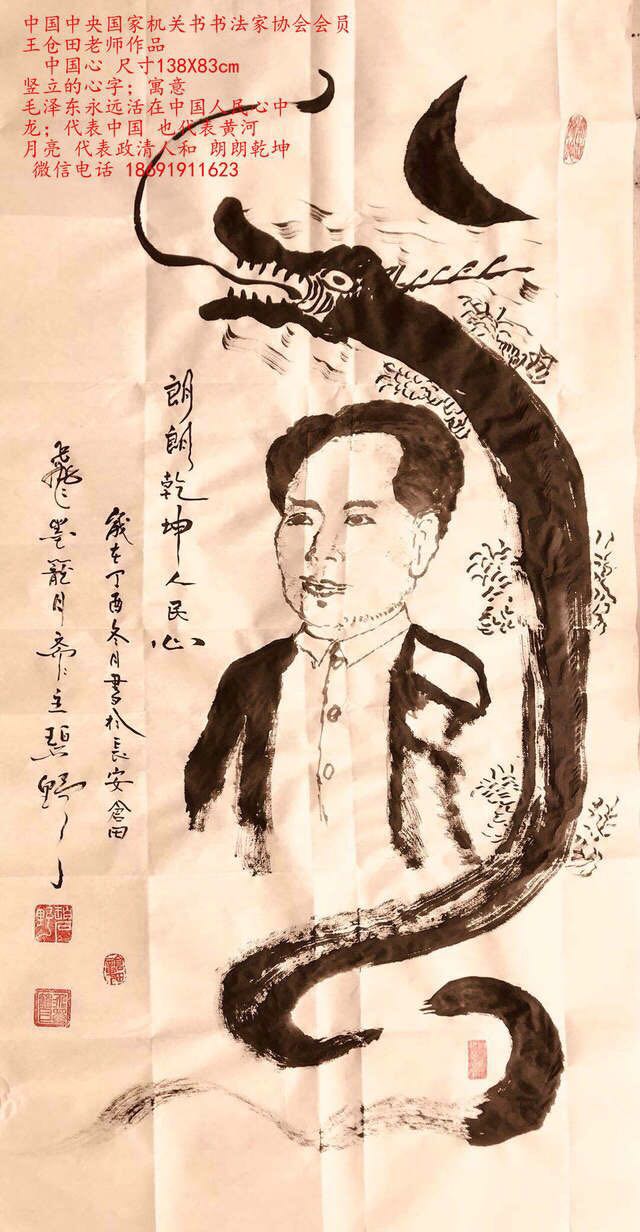 中国中央国家机关书书法家协会会员
王仓田老师作品
中国心 尺寸138X83cm
竖立的心字；寓意
毛泽东永远活在中国人民心中
龙；代表中国 也代表黄河
月亮 代表政清人和 朗朗乾坤
微信电话 18691911623
朗朗乾坤人民心
歲在丁酉冬月書於長安倉田
飛墨龍月齋主碧野